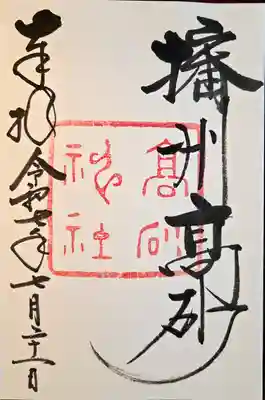 播州高砂
高砂
神社
奉拝
令和七年七月二十一日